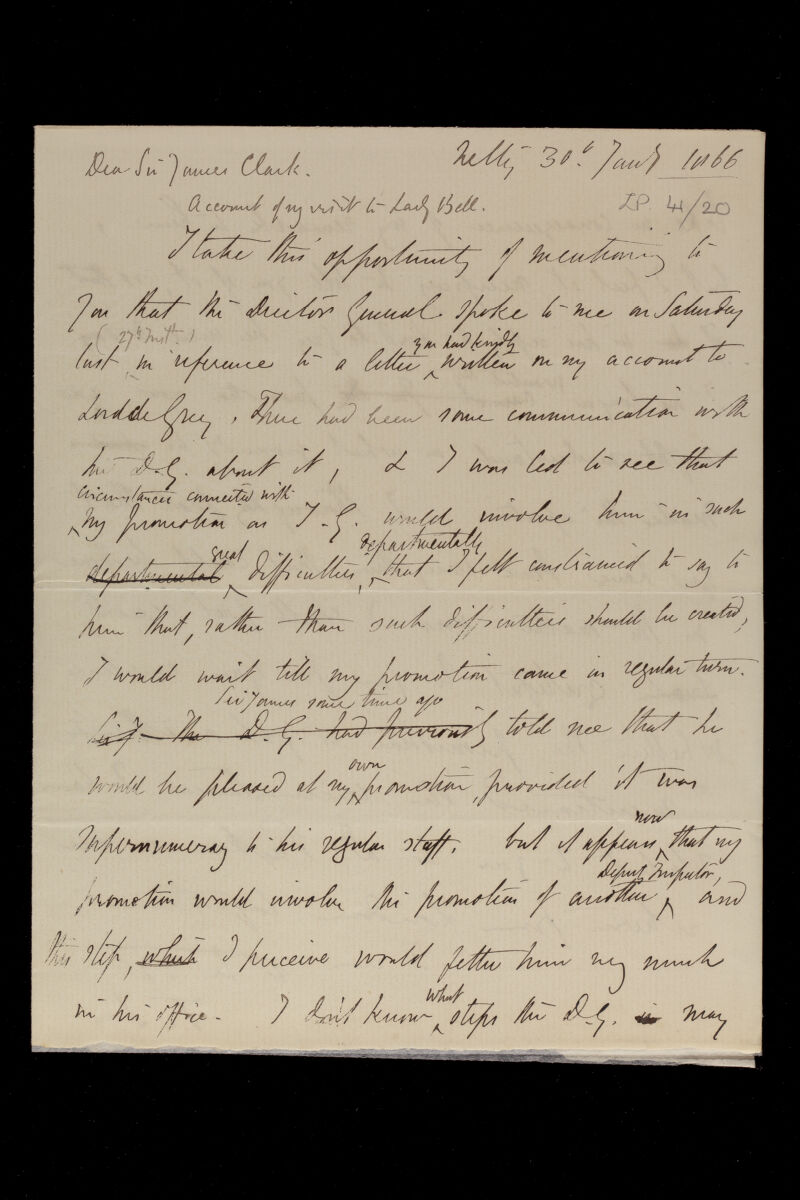 Netley 30th Jany 1866
Dear Sir James Clark.
Account of my visit to Lady Bell.
LP. 41/20
I take this opportunity of mentioning to
you that the Director General spoke to me on Saturday
(27th Inst.)
last, in reference to a letter you had kindly written on my account to
Lord de Grey. There had been some communication with
the D.G. about it, & I was led to see that
circumstances connected with
my promotion as I.G. would involve him in such
departmental great difficulties, departmentally that I felt constrained to say to
him that, rather than such difficulties should be created,
I would wait till my promotion came in regular turn.
Sir James some time ago
Sir J. The D.G. had previously told me that he
would be pleased at my own promotion, provided it was
supernumerary to his regular staff. but it appears now that my
promotion would involve the promotion of another Deputy Inspector, and
this step, which I perceive would fetter him very much
in his office. I don't know what steps the D.G. may